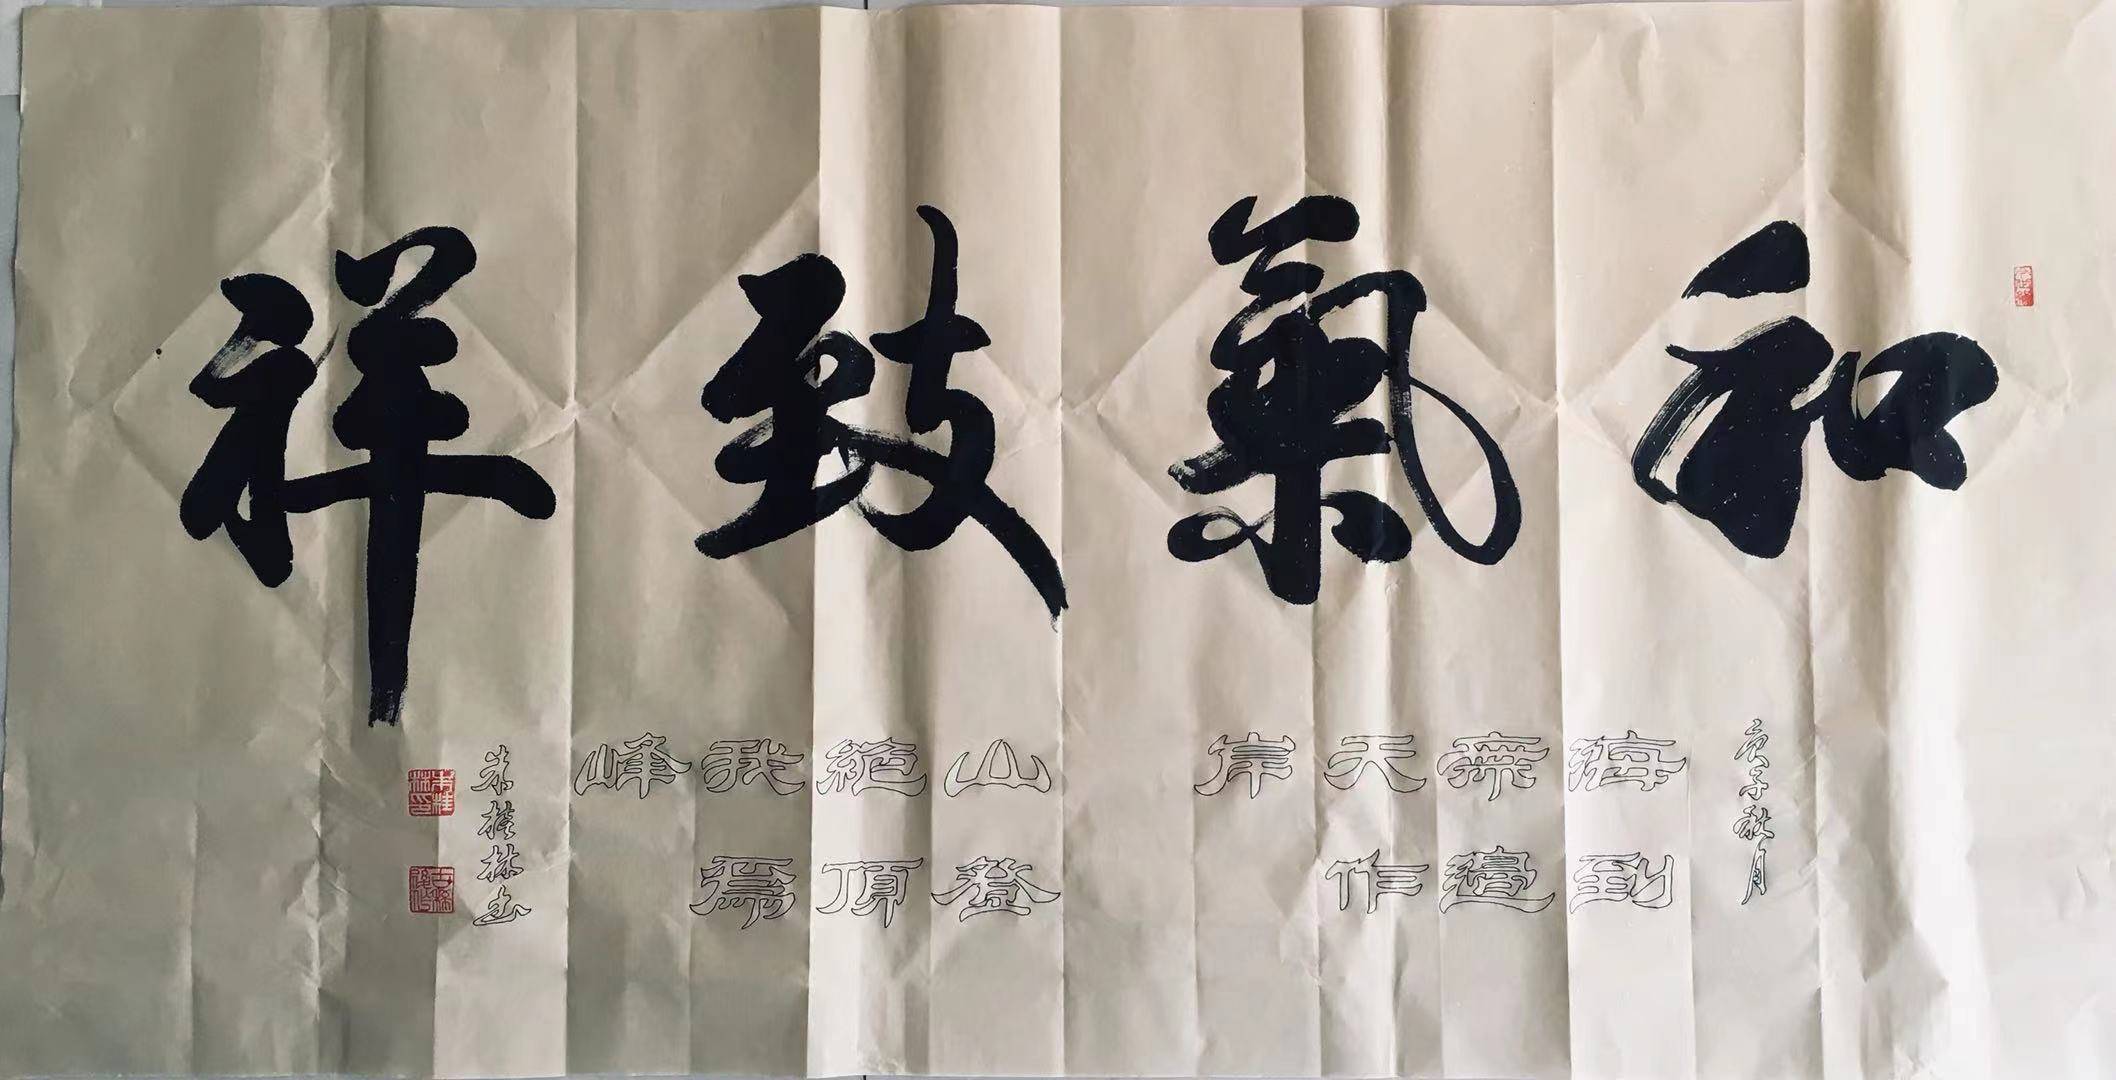 和氣致祥
庚子秋月
海到
無邊
天作
岸
山登
絶頂
我爲
峰
朱桂林书
朱桂林印